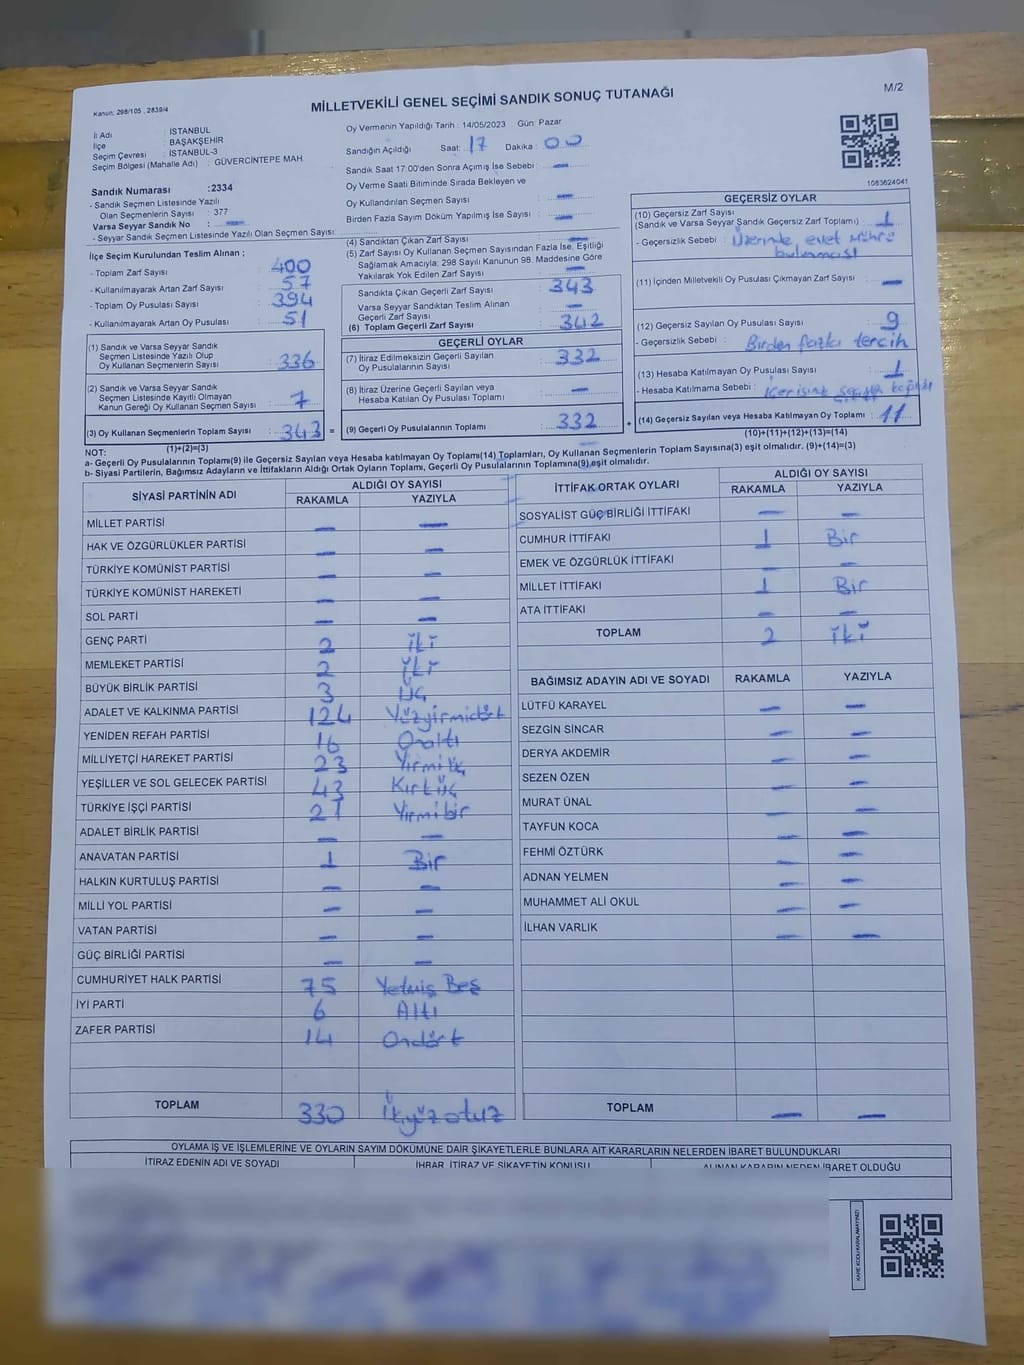 Kanun: 298/105 , 2839/4
MİLLETVEKİLİ GENEL SEÇİMİ SANDIK SONUÇ TUTANAĞI
M/2
İl Adı : İSTANBUL
İlçe : BAŞAKŞEHİR
Seçim Çevresi : İSTANBUL-3
Seçim Bölgesi (Mahalle Adı) : GÜVERCİNTEPE MAH.
Sandık Numarası :2334
- Sandık Seçmen Listesinde Yazılı
Olan Seçmenlerin Sayısı : 377
Varsa Seyyar Sandık No : —
- Seyyar Sandık Seçmen Listesinde Yazılı Olan Seçmen Sayısı:
İlçe Seçim Kurulundan Teslim Alınan ;
- Toplam Zarf Sayısı : 400
- Kullanılmayarak Artan Zarf Sayısı : 57
- Toplam Oy Pusulası Sayısı : 394
- Kullanılmayarak Artan Oy Pusulası : 51
(1) Sandık ve Varsa Seyyar Sandık
Seçmen Listesinde Yazılı Olup
Oy Kullanan Seçmenlerin Sayısı : 336
(2) Sandık ve Varsa Seyyar Sandık
Seçmen Listesinde Kayıtlı Olmayan
Kanun Gereği Oy Kullanan Seçmen Sayısı : 7
(3) Oy Kullanan Seçmenlerin Toplam Sayısı : 343 =
(1)+(2)=(3)
Oy Vermenin Yapıldığı Tarih : 14/05/2023 Gün: Pazar
Sandığın Açıldığı Saat: 17 Dakika : 00
Sandık Saat 17:00'den Sonra Açımış İse Sebebi : —
Oy Verme Saati Bitiminde Sırada Bekleyen ve
Oy Kullandırılan Seçmen Sayısı : —
Birden Fazla Sayım Döküm Yapılmış İse Sayısı : —
(4) Sandıktan Çıkan Zarf Sayısı : —
(5) Zarf Sayısı Oy Kullanan Seçmen Sayısından Fazla İse, Eşitliği
Sağlamak Amacıyla; 298 Sayılı Kanunun 98. Maddesine Göre
Yakılarak Yok Edilen Zarf Sayısı : —
Sandıkta Çıkan Geçerli Zarf Sayısı : 343
Varsa Seyyar Sandıktan Teslim Alınan
Geçerli Zarf Sayısı : —
(6) Toplam Geçerli Zarf Sayısı : 342
GEÇERLİ OYLAR
(7) İtiraz Edilmeksizin Geçerli Sayılan
Oy Pusulalarının Sayısı : 332
(8) İtiraz Üzerine Geçerli Sayılan veya
Hesaba Katılan Oy Pusulası Toplamı : —
(9) Geçerli Oy Pusulalarının Toplamı : 332 +
1083624041
GEÇERSİZ OYLAR
(10) Geçersiz Zarf Sayısı
(Sandık ve Varsa Seyyar Sandık Geçersiz Zarf Toplamı) : 1
- Geçersizlik Sebebi : Üzerinde evet mührü
bulunması
(11) İçinden Milletvekili Oy Pusulası Çıkmayan Zarf Sayısı : —
(12) Geçersiz Sayılan Oy Pusulası Sayısı : 9
- Geçersizlik Sebebi : Birden fazla tercih
(13) Hesaba Katılmayan Oy Pusulası Sayısı : 1
- Hesaba Katılmama Sebebi :
(14) Geçersiz Sayılan veya Hesaba Katılmayan Oy Toplamı : 11
(10)+(11)+(12)+(13)=(14)
NOT:
a- Geçerli Oy Pusulalarının Toplamı(9) ile Geçersiz Sayılan veya Hesaba katılmayan Oy Toplam(14) Toplamları, Oy Kullanan Seçmenlerin Toplam Sayısına(3) eşit olmalıdır. (9)+(14)=(3)
b- Siyasi Partilerin, Bağımsız Adayların ve İttifakların Aldığı Ortak Oyların Toplam, Geçerli Oy Pusulalarının Toplamına(9) eşit olmalıdır.
SİYASİ PARTİNİN ADI ALDIĞI OY SAYISI
RAKAMLA YAZIYLA
MİLLET PARTİSİ — —
HAK VE ÖZGÜRLÜKLER PARTİSİ — —
TÜRKİYE KOMÜNİST PARTİSİ — —
TÜRKİYE KOMÜNİST HAREKETİ — —
SOL PARTİ — —
GENÇ PARTİ 2 İki
MEMLEKET PARTİSİ 2 İki
BÜYÜK BİRLİK PARTİSİ 3 Üç
ADALET VE KALKINMA PARTİSİ 124 Yüzyirmidört
YENİDEN REFAH PARTİSİ 16 Onaltı
MİLLİYETÇİ HAREKET PARTİSİ 23 Yirmiüç
YEŞİLLER VE SOL GELECEK PARTİSİ 43 Kırküç
TÜRKİYE İŞÇİ PARTİSİ 21 Yirmibir
ADALET BİRLİK PARTİSİ — —
ANAVATAN PARTİSİ 1 Bir
HALKIN KURTULUŞ PARTİSİ — —
MİLLİ YOL PARTİSİ — —
VATAN PARTİSİ — —
GÜÇ BİRLİĞİ PARTİSİ — —
CUMHURİYET HALK PARTİSİ 75 Yetmiş Beş
İYİ PARTİ 6 Altı
ZAFER PARTİSİ 14 Ondört
TOPLAM 330
İTTİFAK ORTAK OYLARI ALDIĞI OY SAYISI
RAKAMLA YAZIYLA
SOSYALİST GÜÇ BİRLİĞİ İTTİFAKI — —
CUMHUR İTTİFAKI 1 Bir
EMEK VE ÖZGÜRLÜK İTTİFAKI — —
MİLLET İTTİFAKI 1 Bir
ATA İTTİFAKI — —
TOPLAM 2 İki
BAĞIMSIZ ADAYIN ADI VE SOYADI RAKAMLA YAZIYLA
LÜTFÜ KARAYEL — —
SEZGİN SİNCAR — —
DERYA AKDEMİR — —
SEZEN ÖZEN — —
MURAT ÜNAL — —
TAYFUN KOCA — —
FEHMİ ÖZTÜRK — —
ADNAN YELMEN — —
MUHAMMET ALİ OKUL — —
İLHAN VARLIK — —
TOPLAM — —
OYLAMA İŞ VE İŞLEMLERİNE VE OYLARIN SAYIM DÖKÜMÜNE DAİR ŞİKAYETLERLE BUNLARA AİT KARARLARIN NELERDEN İBARET BULUNDUKLARI
İTİRAZ EDENİN ADI VE SOYADI İHBAR, İTİRAZ VE ŞİKAYETİN KONUSU ALINAN KARARIN NEDEN İBARET OLDUĞU
KARE KODU KARALAMAYINIZ!